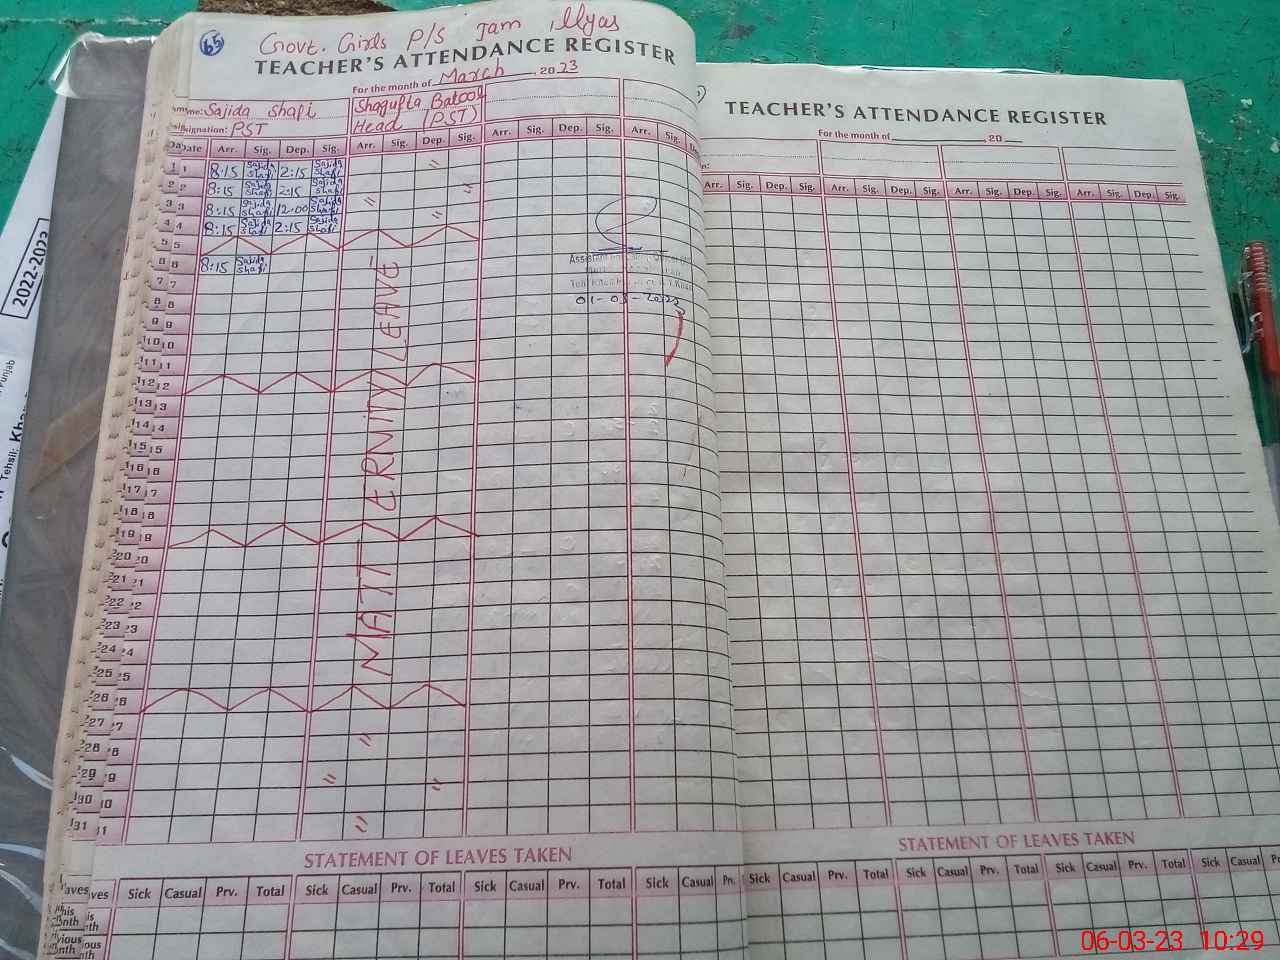 65
Govt. Girls P/S Jam Illyas
TEACHER'S ATTENDANCE REGISTER
For the month of March, 2023
Name: Sajida Shafi
Shagufta Batool
Designation: PST
Head (PST)
Date Arr. Sig. Dep. Sig. Arr. Sig. Dep. Sig. Arr. Sig. Dep. Sig. Arr. Sig.
1 8:15 Sajida Shafi 2:15 Sajida Shafi "
2 8:15 Sajida Shafi 2:15 Sajida Shafi "
3 8:15 Sajida Shafi 12:00 Sajida Shafi "
4 8:15 Sajida Shafi 2:15 Sajida Shafi "
5
6 8:15 Sajida Shafi
7
8
9
10
11
12
13
14
15
16
17
18
19
20
21
22
23
24
25
26
27
28 "
29 " "
30
31 "
MATTERNITY LEAVE
01-03-2023
STATEMENT OF LEAVES TAKEN
Sick Casual Prv. Total Sick Casual Prv. Total Sick Casual Prv. Total Sick Casual Prv.
TEACHER'S ATTENDANCE REGISTER
For the month of , 20
Arr. Sig. Dep. Sig. Arr. Sig. Dep. Sig. Arr. Sig. Dep. Sig. Arr. Sig. Dep. Sig.
STATEMENT OF LEAVES TAKEN
Sick Casual Prv. Total Sick Casual Prv. Total Sick Casual Prv. Total Sick Casual
2022-2023
Punjab
Tehsil:
06-03-23 10:29